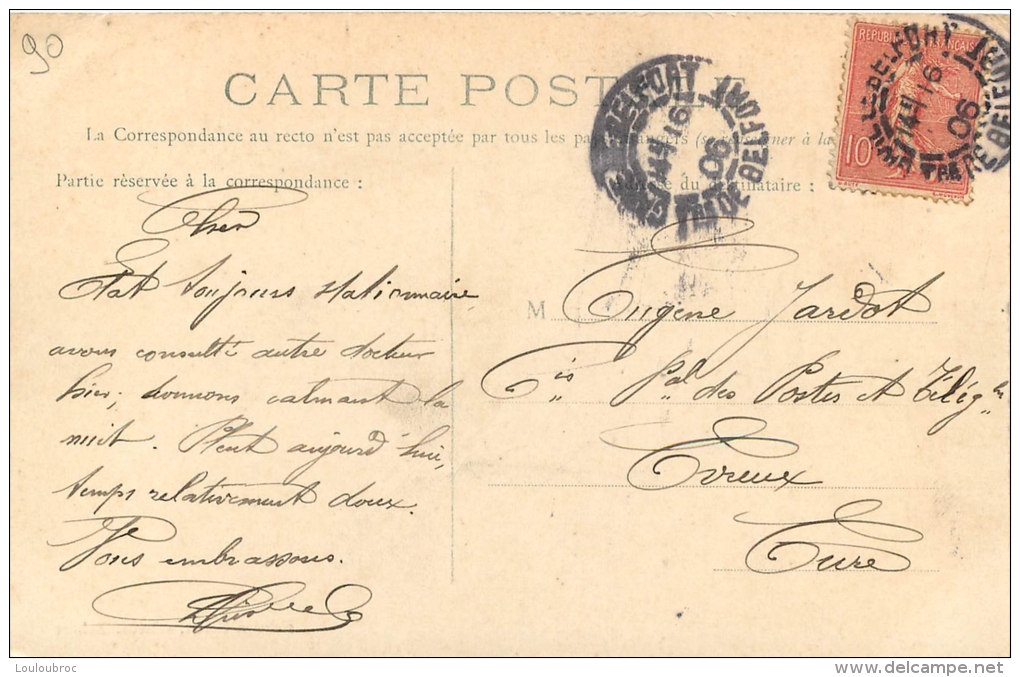 90
CARTE POSTALE
La Correspondance au recto n'est pas acceptée par tous les pays étrangers (se renseigner à la
Partie rèservée à la correspondance :
Adresse du destinataire :
REPUBLIQUE FRANÇAISE
10
BELFORT
16
06
BELFORT
16
06
Cher
Etat toujours stationnaire
avons consulté autre docteur
hier, donnons calmant la
nuit. Pleut aujourd'hui,
temps relativement doux.
Vous embrassons.
M Eugène Jardot
Cis Pal des Postes et Télég
Evreux
Eure
Louloubroc
www.delcampe.net